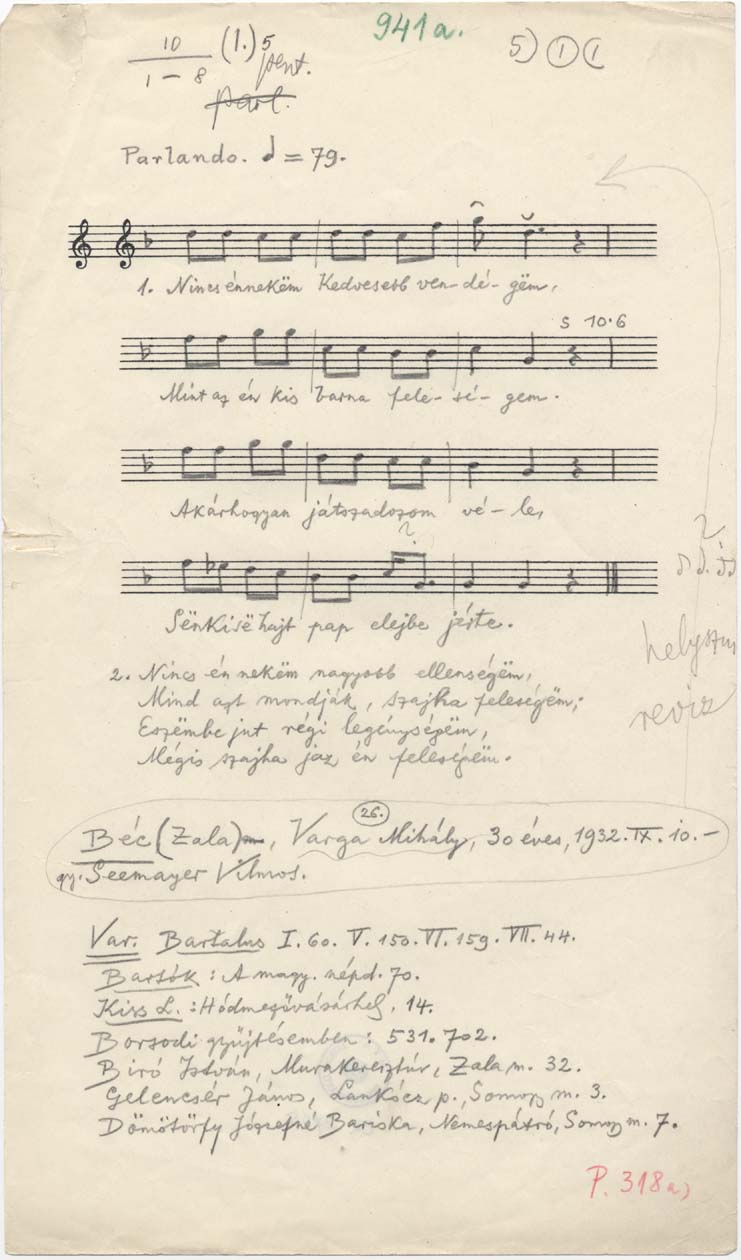 941a.
10 (1.) 5
1 - 8 pent.
parl.
5) 1 (
Parlando. ♩ = 79.
1. Nincs énnekëm Kedvesebb ven-dé-gëm,
S 10·6
Mint az én kis barna fele-sé-gem.
Akárhogyan játszadozom vé-le,
?
Sënkisë hajt pap elejbe jéste.
?
helyszin
reviz
2. Nincs én nekëm nagyobb ellenségëm,
Mind azt mondják, szajha feleségëm;
Eszëmbe jut régi legénységëm,
Mégis szajha jaz én feleségëm.
26.
Béc (Zala), Varga Mihály, 30 éves, 1932. IX. 10.-
gy. Seemayer Vilmos.
Var. Bartalus I. 60. V. 150. VI. 159. VII. 44.
Bartók: A magy. népd. 70.
Kiss L.: Hódmezővásárhely, 14.
Borsodi gyűjtésemben: 531. 702.
Biró István, Murakeresztúr, Zala m. 32.
Gelencsér János, Lankócz p., Somogy m. 3.
Dömötörfy Józsefné Bariska, Nemespátró, Somogy m. 7.
P. 318a)